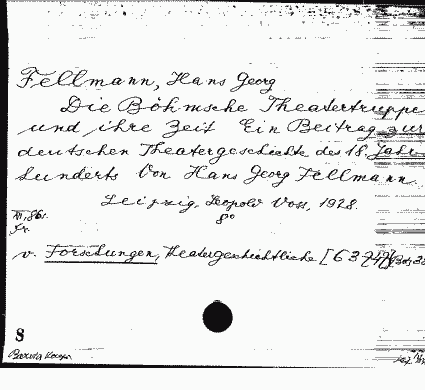 Fellmann, Hans Georg
Die Böhmsche Theatertruppe
und ihre Zeit Ein Beitrag zur
deutschen Theatergeschichte des 18. Jahr
hunderts Von Hans Georg Fellmann.
Leipzig, Leopold Voss, 1928.
8°
v. Forschungen, Theatergeschichtliche [63
8